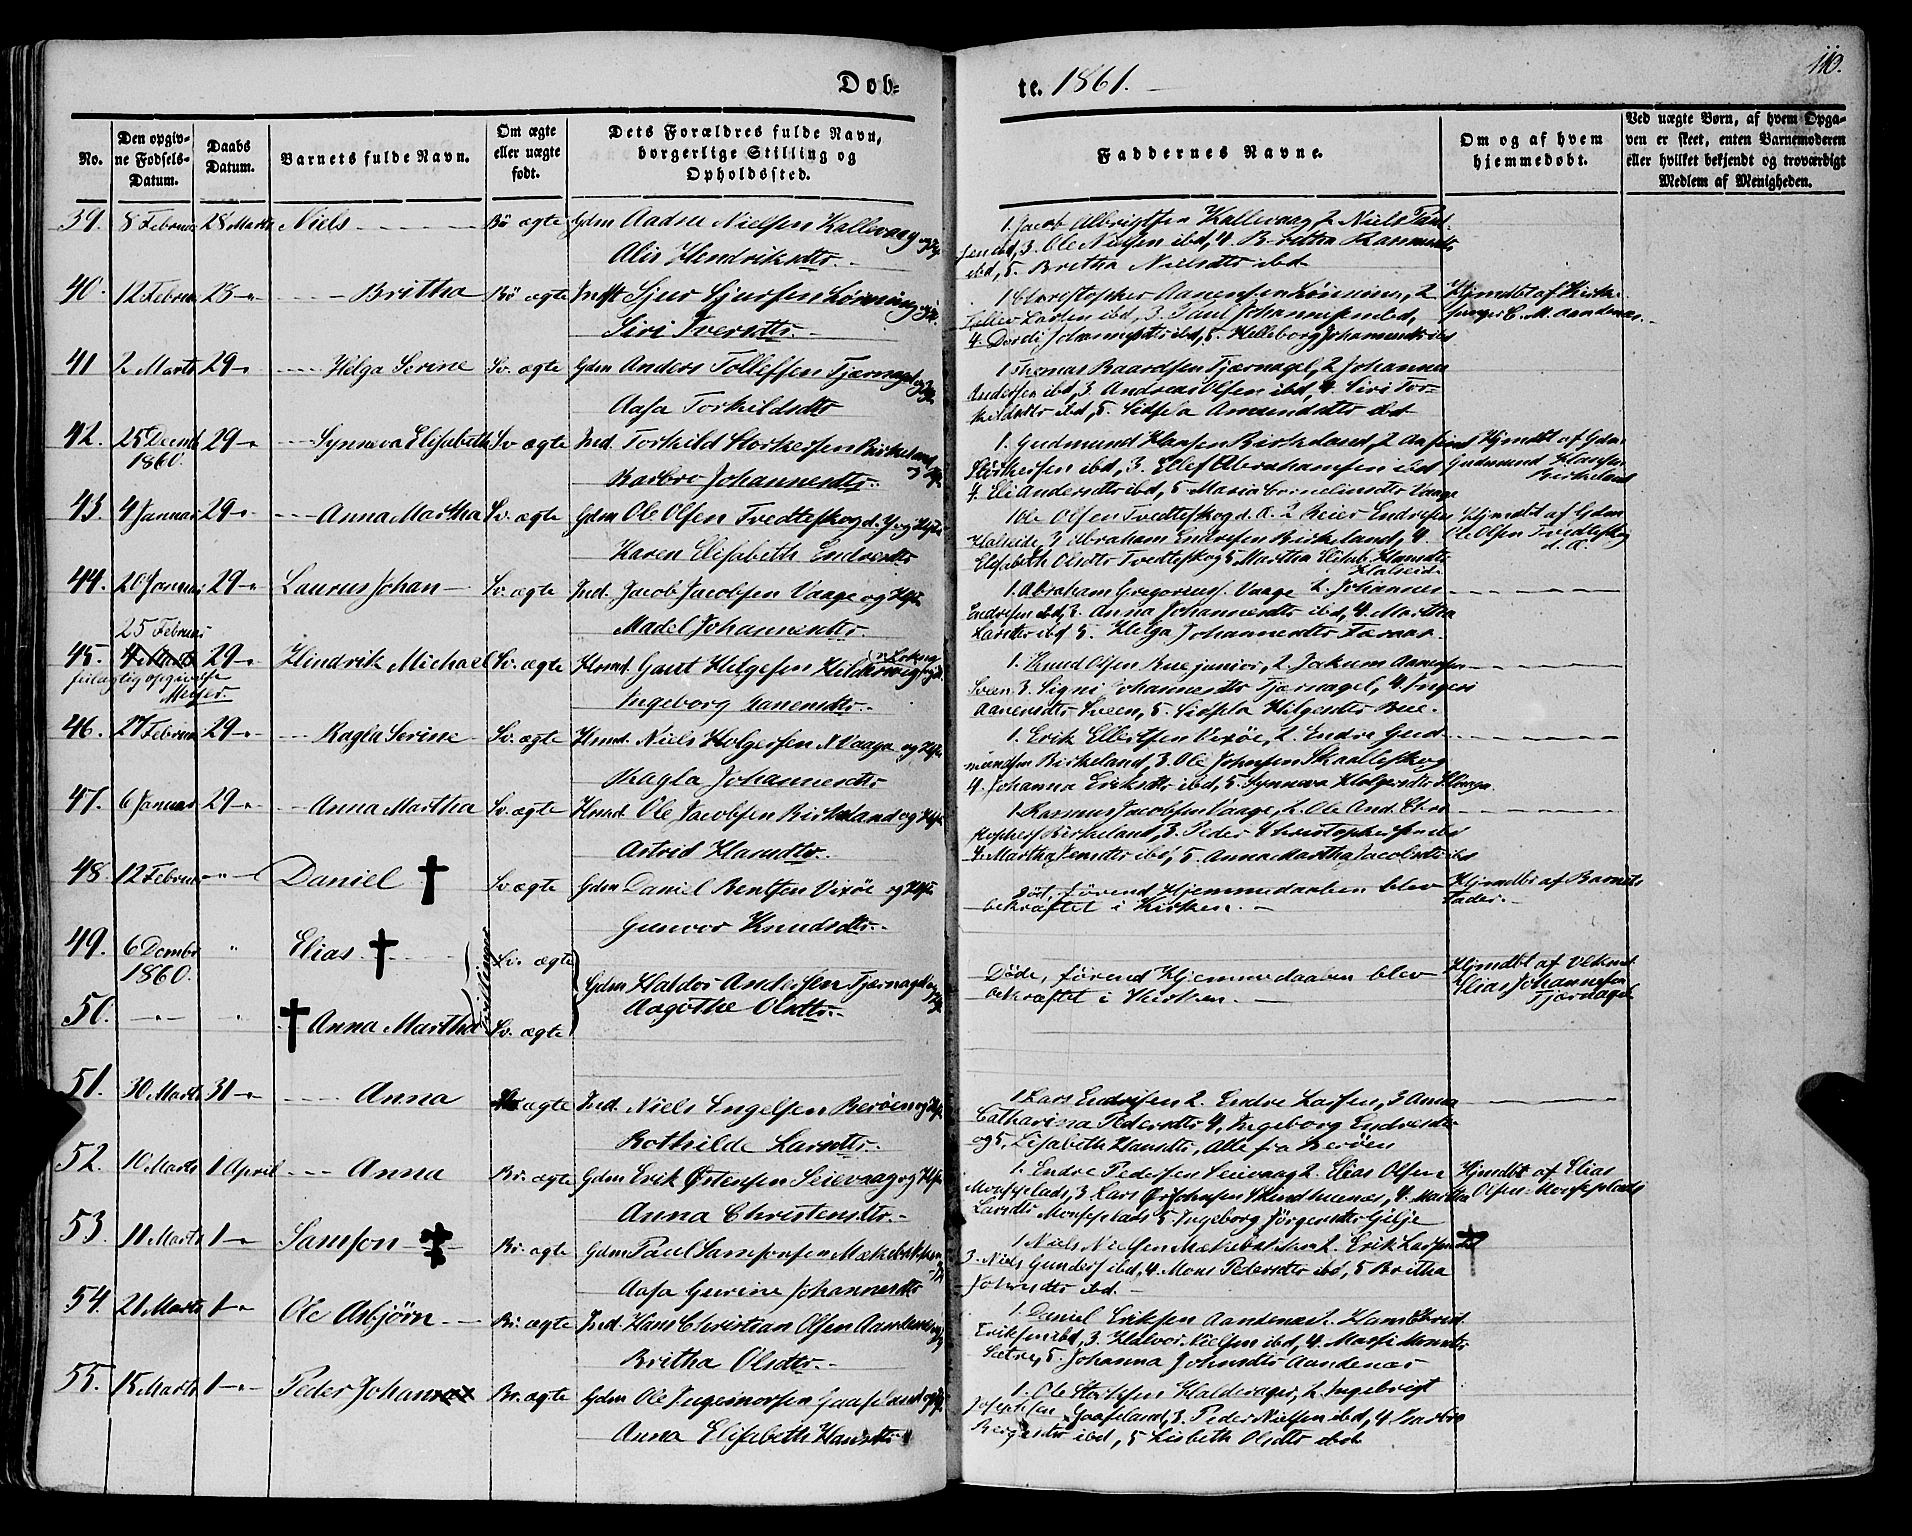 Dob=
te. 1861.
110.
No.
Den opgiv-
ne Fodsels-
Datum.
Daabs
Datum.
Barnets fulde Navn.
Om ægte
eller uægte
født.
Dets Forældres fulde Navn,
borgerlige Stilling og
Opholdssted.
Faddernes Navne.
Om og af hvem
hjemmedobt.
Ved uægte Born, af hvem Opga-
ven er skeet, enten Barnemoderen
eller hvilket bekjendt og troværdigt
Medlem af Menigheden.
39. 8 Februar 28 Marts Niels Bö ægte Gdm Aadne Nielsen Kallevaag og H.
Alis Hendriksdtr.
1. Jacob Albrigtsen Kallevaag, 2 Niels Paul-
sen ibd, 3. Ole Nielsen ibd, 4. Britha Rasmusdtr
ibd, 5. Britha Nielsdtr ibd
40. 12 Februar 28 -"- Britha Bö ægte Indst Sjur Sjursen Lönning og H.
Siri Iversdtr.
1 Christopher Aanensen Lönning, 2
Larsen ibd, 3. Paul Johannesen ibd,
4. Dordi Johannesdtr ibd, 5. Helleborg Johannesdtr ibd
Hjmdbt af Kirke-
sanger C. M. Aandenæs.
41 2 Marts 29 -"- Helga Serine Sv. ægte Gdm Anders Tollefsen Tjernagel og H.
Aasa Torkildsdtr
1 Thomas Baardsen Tjernagel, 2 Johannes
Andersen ibd, 3. Andreas Olsen ibd, 4. Siri Tor-
kildsdtr ibd, 5. Sidsela Amundsdtr ibd
42. 25 Decemb 29 -"- Synneva Elisabeth Sv ægte Ind. Torkild Storkersen Birkeland
1860.
og H.
Barbro Johannesdtr.
1. Gudmund Klausen Birkeland, 2
Störkersen ibd, 3. Ellef Abrahamsen ibd
4. Eli Andersdtr ibd, 5. Maria Corneliusdtr Vaage
Hjmdbt af Gdm
Gudmund Klausen
Birkeland
43. 4 Januar 29 -"- Anna Martha Sv. ægte Gdm Ole Olsen Tvedteskog d. Y. og Hustr
Karen Elisabeth Endresdtr
1 Ole Olsen Tvedteskog d. A. 2 Reier Endresen
Halseide, 3 Abraham Endresen Birkeland, 4.
Elisabeth Olsdtr Tvedteskog 5 Martha Elisab. Hansdtr
Halseide
Hjmdbt af Gdm
Ole Olsen Tvedteskog
d. A.
44. 20 Januar 29 -"- Laurus Johan Sv. ægte Ind. Jacob Jacobsen Vaage og Hst.
Madel Johannesdtr.
1. Abraham Gregoriuss. Vaage 2. Johannes
Endresen ibd, 3. Anna Johannesdtr ibd, 4. Martha
Larsdtr ibd 5. Helga Johannesdtr Færaas.
25 Februar
45. 4 Marts 29 -"- Hindrik Michael Sv. ægte Hsmd. Gaut Helgesen
Meyer.
Ingeborg Aanensdtr.
1. Knud Olsen Bue junior, 2. Jakum Aanensen
Sveen 3. Signi Johannesdtr Tjernagel, 4. Ingeri
Aanensdtr Sveen, 5. Sidsela Helgesdtr Bue.
46. 27 Februar 29 -"- Ragla Serine Sv. ægte Hsmd. Niels Holgersen N Vaage og Hst
Ragla Johannesdtr
1. Erik Ellertsen Vixöe, 2. Endre Gud-
mundsen Birkeland, 3. Ole Johnsen Skaalleskog
4. Johanna Eriksdtr ibd, 5. Synneva Holgersdtr N Vaage.
47. 6 Januar 29 -"- Anna Martha Sv. ægte Hsmd. Ole Jacobsen Birkeland og Hst
Astrid Hansdtr.
1. Rasmus Jacobsen Vaage, 2. Ole And. Chri-
stophers Birkeland, 3. Peder Christophersen ibd
4. Martha Jensdtr ibd, 5. Anna Martha Jacobsdtr ibd
48. 12 Februar -"- Daniel Sv ægte Gdm Daniel Bentsen Vixöe og Hst
Gunvor Knudsdtr.
Död, förend Hjemmedaaben blev
bekræftet i Kirken.
Hjmdbt af Barnets
Fader.
49. 6 Decmbr " Elias Sv. ægte
1860.
Tvillinger
Gdm Haldor Andersen Tjernagel og H.
Aagothe Olsdtr.
Döde, förend Hjemmedaaben blev
bekræftet i Kirken.
Hjmdbt af
Elias Johannesen
Tjernagel
50. -"- " Anna Martha Sv. ægte
51. 30 Marts 31 -"- Anna ægte Ind. Niels Engelsen Beröen og Hst
Bothilde Larsdtr.
1. Lars Endresen 2. Endre Larsen, 3 Anna
Catharina Pedersdtr 4, Ingeborg Endresdtr
og 5, Lisabeth Hansdtr, Alle fra Beröen
52. 10 Marts 1 April Anna Br. ægte Gdm Erik Östensen Seievaag og Hst
Anna Christensdtr.
1. Endre Pedersen Seievaag 2. Elias Olsen
Mosseplads, 3 Lars Skindhuenæs, 4. Martha
Larsdtr Mosseplads 5. Ingeborg Jörgensdtr Gilje
Hjmdbt af Elias
Olsen Mosseplads
53. 11 Marts 1 -"- Samson Br. ægte Gdm Paul Samsonsen Mækebakken
og H.
Aasa Gurine Johannesdtr
1 Niels Nielsen Mækebakken 2. Erik Larsen ibd
3. Niels Gunders ibd, 4. Mons Petersdtr ibd, 5 Britha
Johnsdtr ibd.
54. 21 Marts 1 -"- Ole Asbjörn Br. ægte Ind. Hans Christian Olsen Aandenæs og H
Britha Olsdtr.
1. Daniel Eriksen Aandenæs 2.
Eriksen ibd, 3. Halvor Nielsen ibd, 4. Marsi Monsdtr
Sætre, 5. Johanna Johnsdtr Aandenæs
55. 15 Marts 1 -"- Peder Johan Br. ægte Gdm Ole Ingemorsen Gaaseland og H
Anna Elisabeth Hansdtr
1. Ole Störksen Haldorager, 2. Ingebrigt
Josephsen Gaaseland, 3. Peder Nielsen ibd, 4 Barbro
ibd, 5 Lisbeth Olsdtr ibd